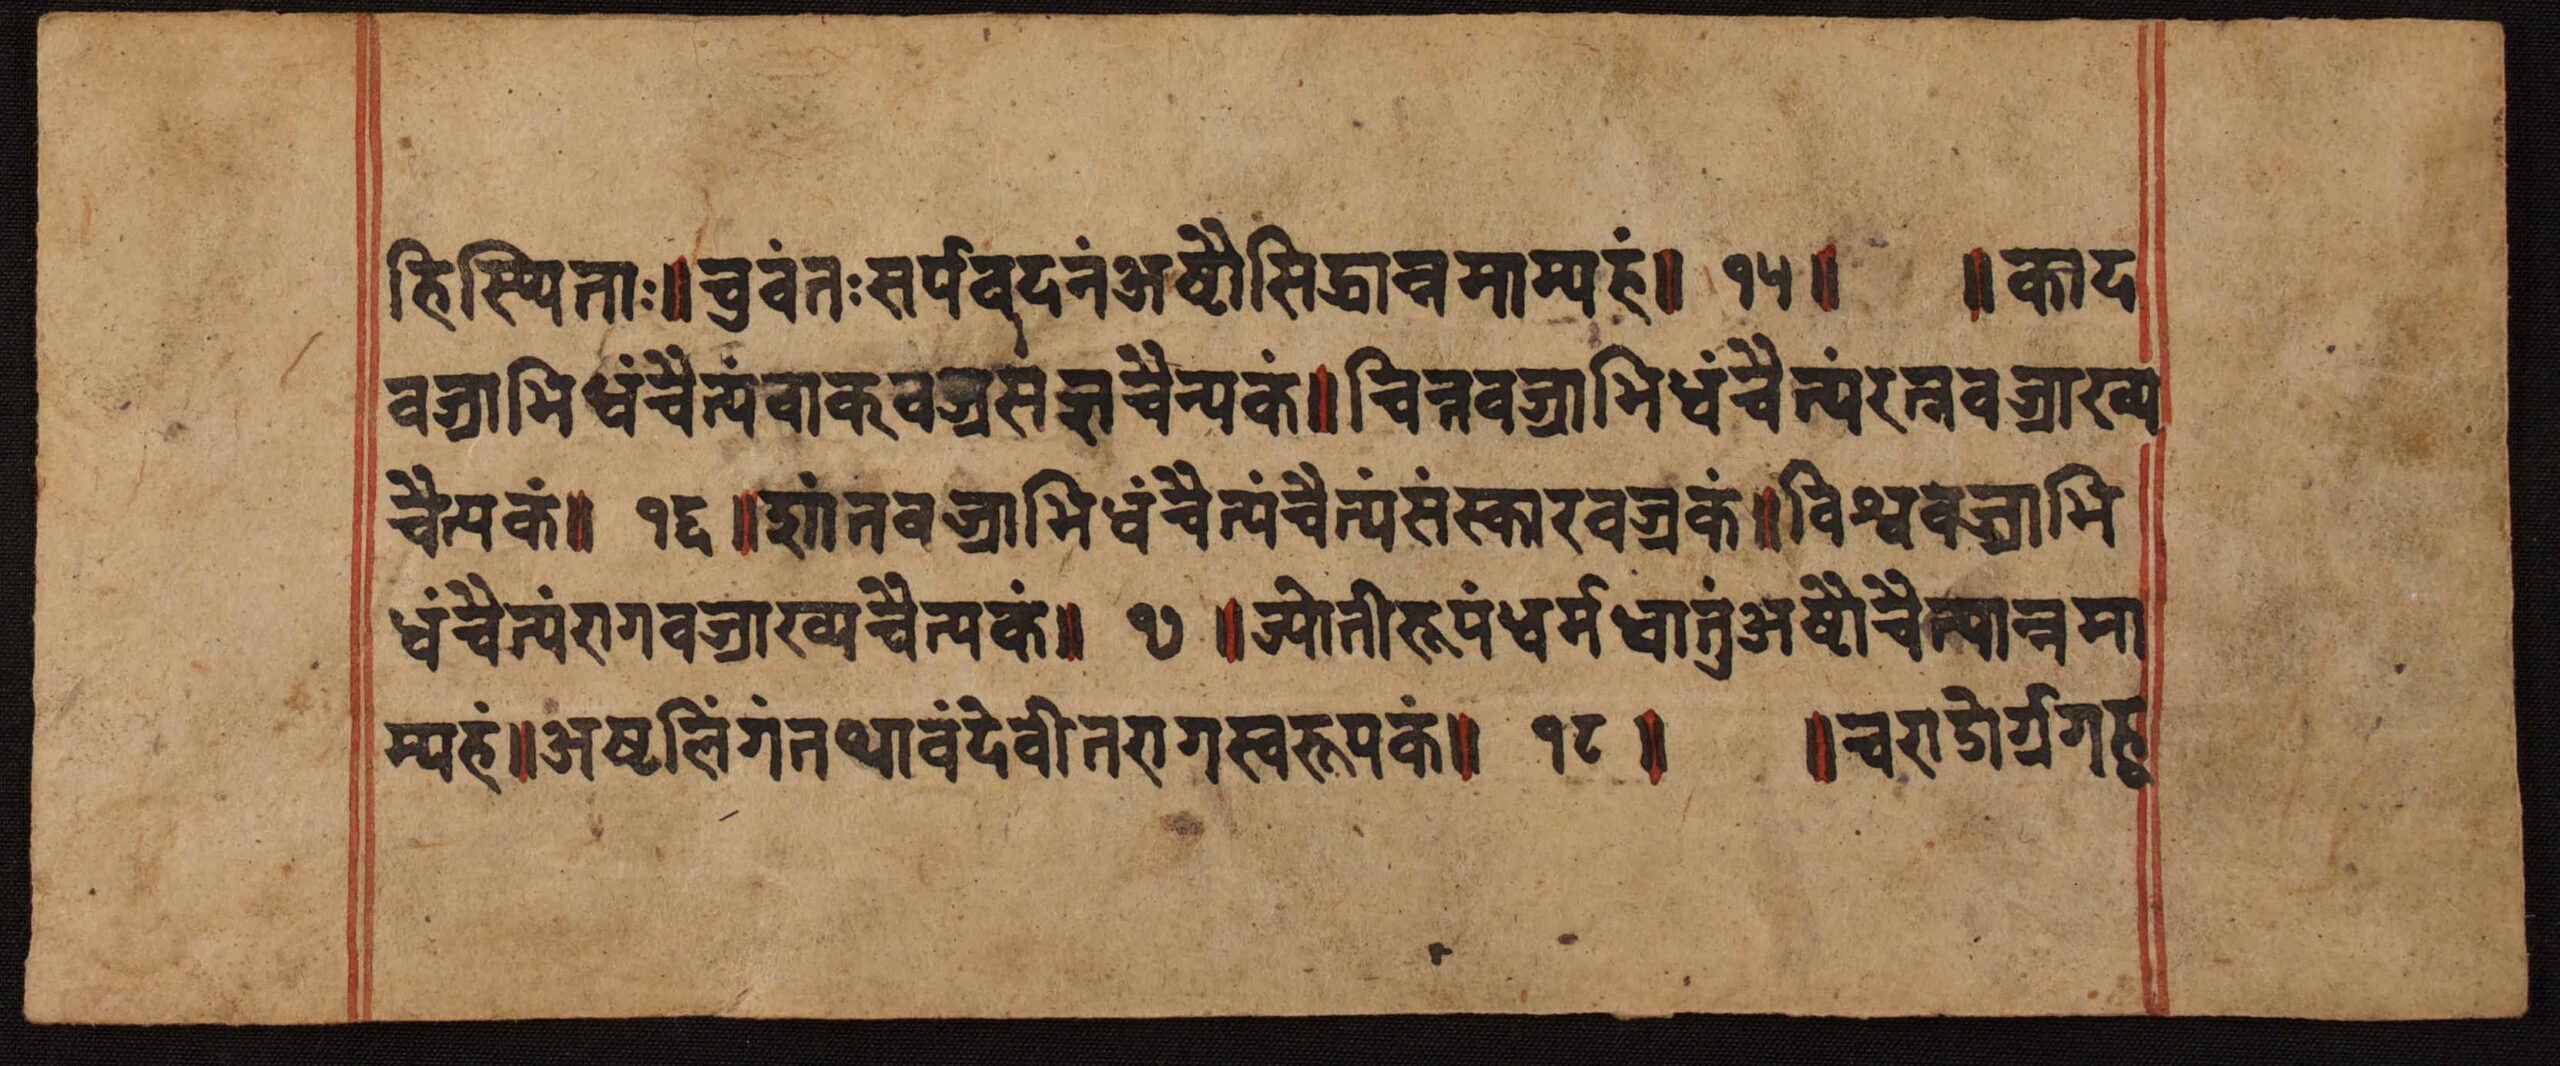 हिस्थिताः॥चुवंतःसर्पवदनंअष्टौसिद्धान्नमाम्यहं॥ १५॥ ॥काद
वज्राभिधंचैत्यंवाकवज्रसंज्ञचैत्यकं॥चित्तवज्राभिधंचैत्यंरत्नवज्राख्य
चैत्यकं॥ १६॥शांतवज्राभिधंचैत्यंचैत्यंसंस्कारवज्रकं॥विश्ववज्राभि
धंचैत्यंरागवज्राख्यचैत्यकं॥ १७॥ज्योतीरूपंधर्मधातुंअष्टौचैत्यान्नमा
म्यहं॥अष्टलिंगंतथावंदेवीतरागस्वरूपकं॥ १८॥ ॥चराडोर्ग्रगह्व